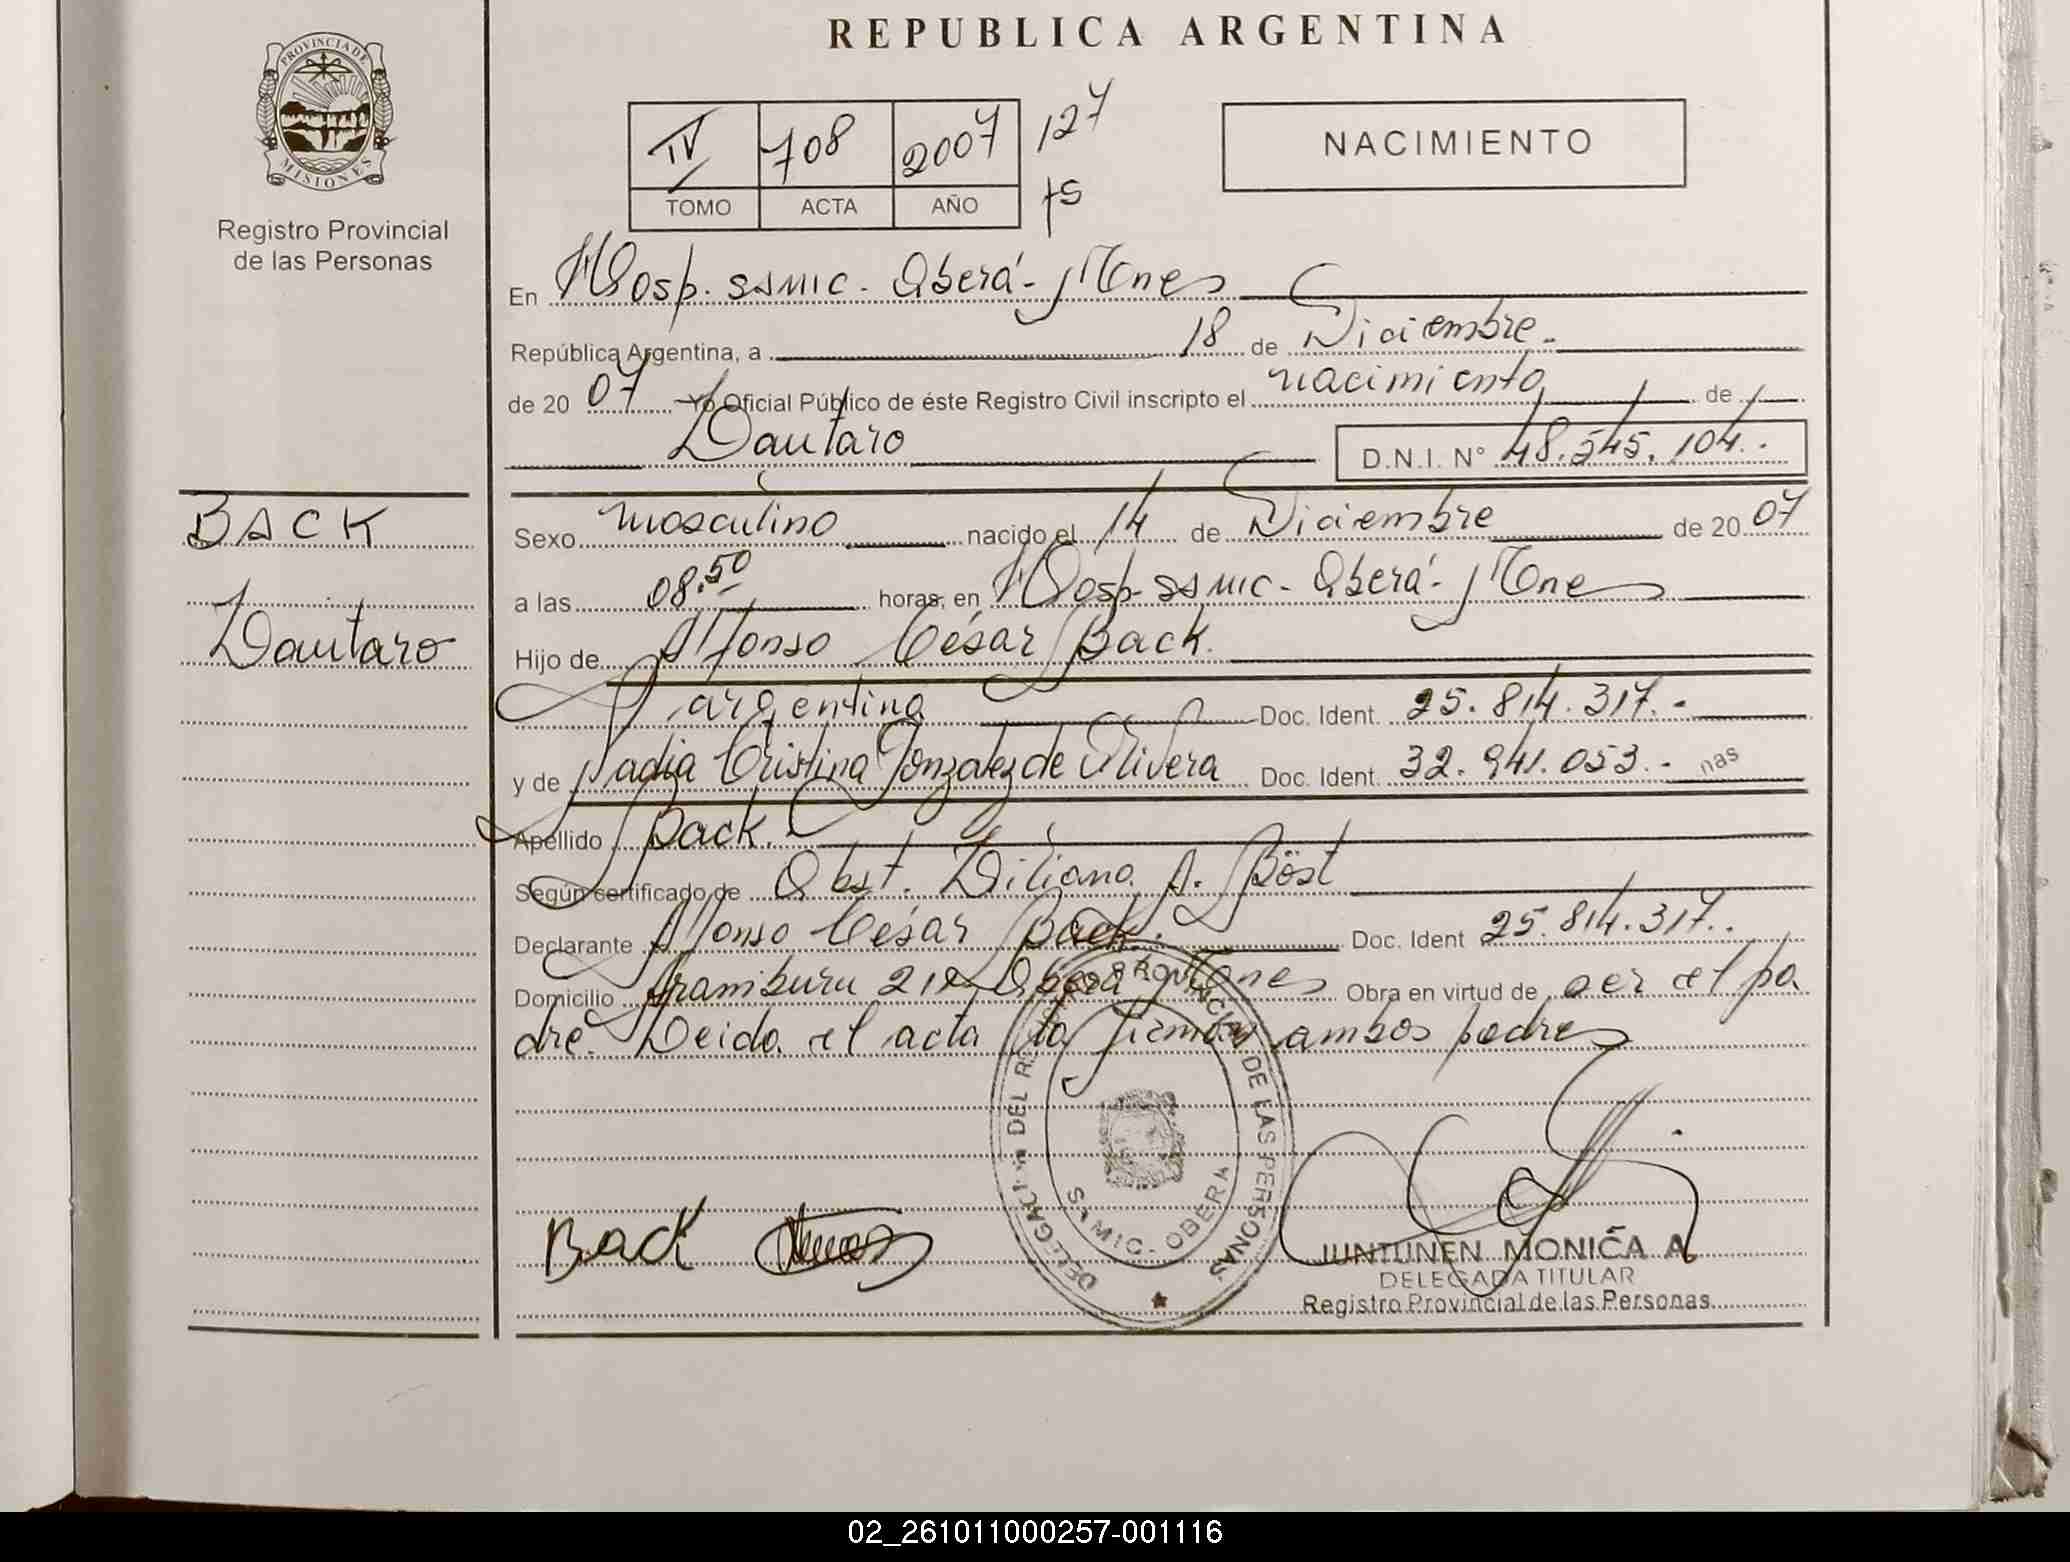 REPUBLICA ARGENTINA
PROVINCIA DE
MISIONES
Registro Provincial
de las Personas
IV 708 2007 127
TOMO ACTA AÑO fs
NACIMIENTO
En Hosp. SAMIC - Oberá - Mnes
República Argentina, a 18 de Diciembre.-
de 20 07 Yo Oficial Público de éste Registro Civil inscripto el nacimiento de
Lautaro D.N.I. N° 48.545.104.-
BACK
Lautaro
Sexo masculino nacido el 14 de Diciembre de 20 07
a las 08.50 horas, en Hosp. SAMIC - Oberá - Mnes
Hijo de Alfonso César Back.
argentina Doc. Ident. 25.814.317.-
y de Nadia Cristina Gonzalez de Olivera Doc. Ident. 32.941.053.- nas
Apellido Back.
Según certificado de Obst. Liliana A. Böst
Declarante Alfonso César Back. Doc. Ident 25.814.317..
Domicilio Aramburu Oberá Mnes Obra en virtud de ser el pa
dre. Leida el acta la firman ambos padres
Back
DELEGACION DEL REGISTRO PROVINCIAL DE LAS PERSONAS
SAMIC - OBERA
JUNTUNEN MONICA A.
DELEGADA TITULAR
Registro Provincial de las Personas
02_261011000257-001116